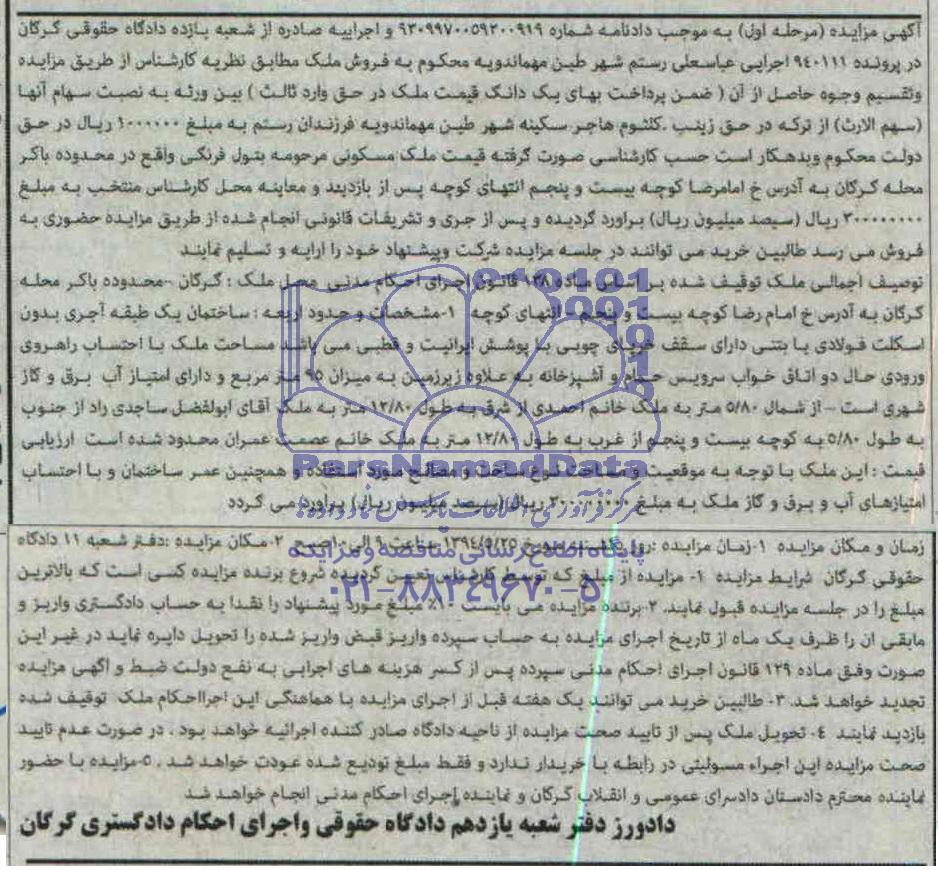 آگهی مزایده (مرحله اول) به موجب دادنامه شماره ۹۳۰۹۹۷۰۰۵۹۳۰۰۹۱۹ و اجراییه صادره از شعبه یازده دادگاه حقوقی گرگان
در پرونده ۹۴۰۱۱۱ اجرایی عباسعلی رستم شهر طین مهماندویه محکوم به فروش ملک مطابق نظریه کارشناس از طریق مزایده
وتقسیم وجوه حاصل از آن ( ضمن پرداخت بهای یک دانگ قیمت ملک در حق وارد ثالث ) بین ورثه به نصبت سهام آنها
(سهم الارث) از ترکه در حق زینب .کلثوم هاجر سکینه شهر طین مهماندویه فرزندان رستم به مبلغ ۱۰۰۰۰۰۰ ریال در حق
دولت محکوم وبدهکار است حسب کارشناسی صورت گرفته قیمت ملک مسکونی مرحومه بتول فرنگی واقع در محدوده باکر
محله گرگان به آدرس خ امامرضا کوچه بیست و پنجم انتهای کوچه پس از بازدید و معاینه محل کارشناس منتخب به مبلغ
۳۰۰۰۰۰۰۰۰ ریال (سیصد میلیون ریال) براورد گردیده و پس از جری و تشریفات قانونی انجام شده از طریق مزایده حضوری به
فروش می رسد طالبین خرید می توانند در جلسه مزایده شرکت وپیشنهاد خود را ارایه و تسلیم نمایند
توصیف اجمالی ملک توقیف شده بر اساس ماده ۱۳۸ قانون اجرای احکام مدنی محل ملک : گرگان -محدوده باکر محله
گرگان به آدرس خ امام رضا کوچه بیست و پنجم - انتهای کوچه ۱-مشخصات و حدود اربعه : ساختمان یک طبقه آجری بدون
اسکلت فولادی یا بتنی دارای سقف خرپای چوبی با پوشش ایرانیت و قطبی می باشد مساحت ملک با احتساب راهروی
ورودی حال دو اتاق خواب سرویس حمام و آشپزخانه به علاوه زیرزمین به میزان ۹۵ متر مربع و دارای امتیاز آب برق و گاز
شهری است – از شمال ۵/۸۰ متر به ملک خانم احمدی از شرق به طول ۱۳/۸۰ متر به ملک آقای ابولفضل ساجدی راد از جنوب
به طول ۵/۸۰ به کوچه بیست و پنجم از غرب به طول ۱۳/۸۰ متر به ملک خانم عصمت عمران محدود شده است ارزیابی
قیمت : این ملک با توجه به موقعیت و مساحت نوع ساخت و مصالح مورد استفاده و همچنین عمر ساختمان و با احتساب
امتیازهای آب و برق و گاز ملک به مبلغ ۳۰۰۰۰۰۰۰۰ ریال (سیصد میلیون ریال) براورد می گردد
زمان و مکان مزایده ۱-زمان مزایده :روز مورخ ۱۳۹۴/۹/۲۵ ساعت ۹ الی ۱۰صبح ۲-مکان مزایده :دفتر شعبه ۱۱ دادگاه
حقوقی گرگان شرایط مزایده ۱- مزایده از مبلغ که توسط کارشناس تعیین گردیده شروع برنده مزایده کسی است که بالاترین
مبلغ را در جلسه مزایده قبول نماید. ۲-برنده مزایده می بایست ۱۰٪ مبلغ مورد پیشنهاد را نقدا به حساب دادگستری واریز و
مابقی ان را ظرف یک ماه از تاریخ اجرای مزایده به حساب سپرده واریز قبض واریز شده را تحویل دایره نماید در غیر این
صورت وفق ماده ۱۲۹ قانون اجرای احکام مدنی سپرده پس از کسر هزینه های اجرایی به نفع دولت ضبط و اگهی مزایده
تجدید خواهد شد. ۳- طالبین خرید می توانند یک هفته قبل از اجرای مزایده با هماهنگی این اجرااحکام ملک توقیف شده
بازدید نمایند ۴- تحویل ملک پس از تایید صحت مزایده از ناحیه دادگاه صادر کننده اجرائیه خواهد بود . در صورت عدم تایید
صحت مزایده این اجراء مسولیتی در رابطه با خریدار ندارد و فقط مبلغ تودیع شده عودت خواهد شد . ۵-مزایده با حضور
نماینده محترم دادستان دادسرای عمومی و انقلاب گرگان و نماینده اجرای احکام مدنی انجام خواهد شد
دادورز دفتر شعبه یازدهم دادگاه حقوقی واجرای احکام دادگستری گرگان
ParsNamadData
مرکز فرآوری اطلاعات پارس نماد داده ها
پایگاه اطلاع رسانی مناقصه و مزایده
۰۲۱-۸۸۳۴۹۶۷۰-۵